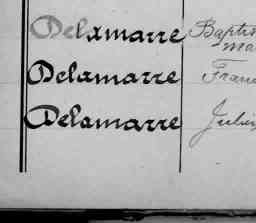 Delamarre Baptis
Delamarre Fran
Delamarre Julie